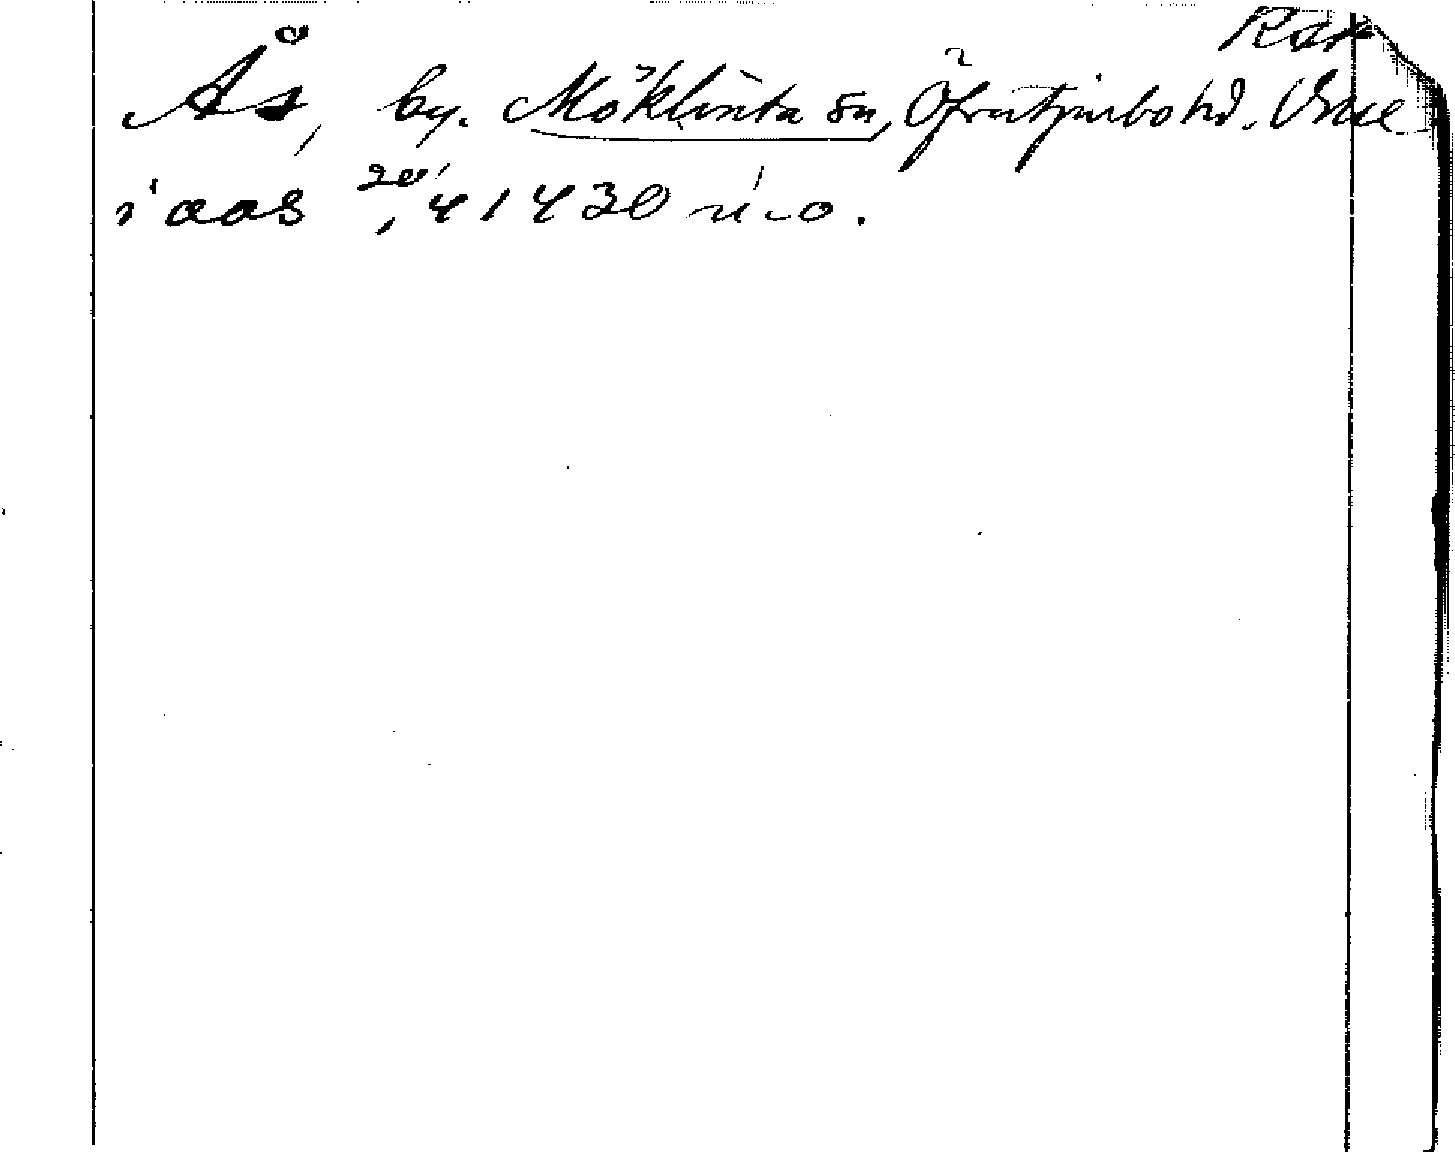 Rar
Ås, by. Möklinta sn, Öfvertjurbo hd. Vsml
i aos 20/4 1430 nio.